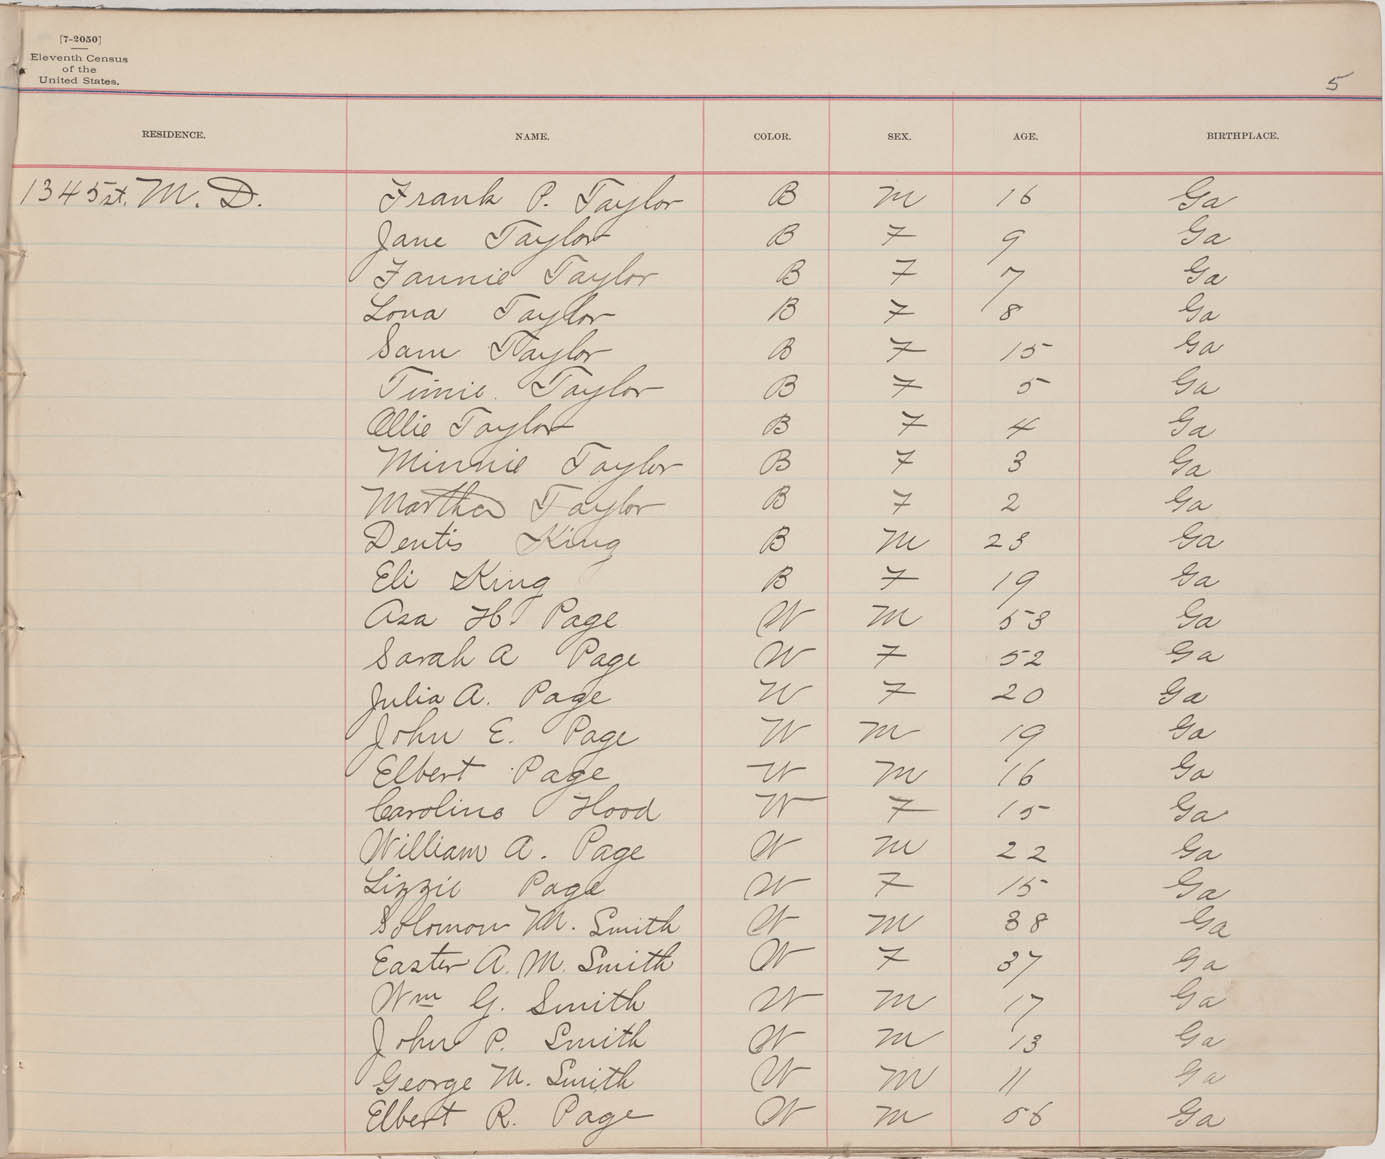 [7-2050]
Eleventh Census
of the
United States.
5
RESIDENCE. NAME. COLOR. SEX. AGE. BIRTHPLACE.
1345st. M. D. Frank P. Taylor B M 16 Ga
Jane Taylor B F 9 Ga
Fannie Taylor B F 7 Ga
Lona Taylor B F 8 Ga
Sam Taylor B F 15 Ga
Timie Taylor B F 5 Ga
Ollie Taylor B F 4 Ga
Minnie Taylor B F 3 Ga
Martha Taylor B F 2 Ga
Dentis King B M 23 Ga
Eli King B F 19 Ga
Asa H. Page W M 53 Ga
Sarah A Page W F 52 Ga
Julia A. Page W F 20 Ga
John E. Page W M 19 Ga
Elbert Page W M 16 Ga
Caroline Hood W F 15 Ga
William A. Page W M 22 Ga
Lizzie Page W F 15 Ga
Solomon M. Smith W M 38 Ga
Easter A. M. Smith W F 37 Ga
Wm G. Smith W M 17 Ga
John P. Smith W M 13 Ga
George M. Smith W M 11 Ga
Elbert R. Page W M 56 Ga